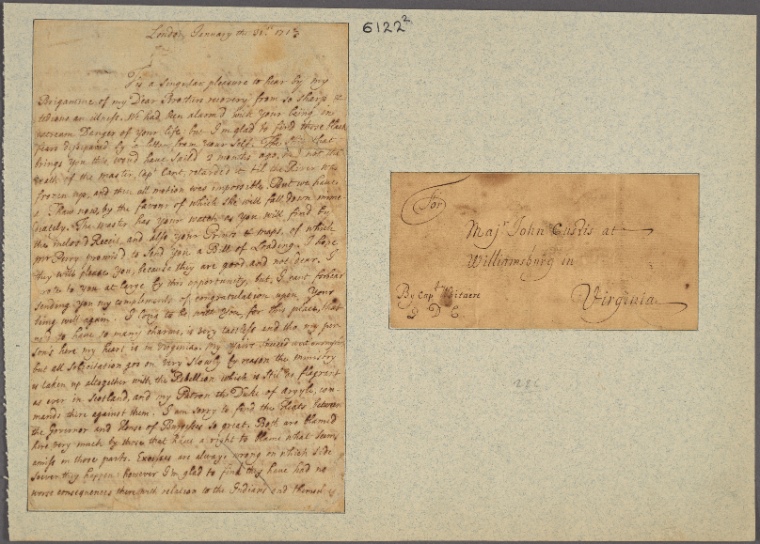 London, January the 31st 1715
6122²
Tis a singular pleasure to hear by my
Brigantine of my Dear Brothers recovery, from so sharp &
tedious an illness. We had been alarm'd with Your being in
extream Danger of your life, but I'm glad to find those
fears dissipated by a letter from your self. The Ship that
brings You this, woud have saild 2 months ago, had not the
death of the Master, Capt Cant, retarded it til the River was
frozen up, and then all motion was impossible. But we have
a Thaw now, by the favor of which she will fall down imme
diately. The Master has your watch as You will find by
the enclos'd Receit, and also your Prints & maps, of which
Mr Perry promis'd to send You a Bill of Loading. I hope
they will please You, because they are good and not dear. I
wrote to You at large by this opportunity, but I cant forbear
sending You my complements of congratulation upon Your
being well again. I long to be with You, for this place, that
us'd to have so many charms, is very tastless and tho my per
son's here my heart is in Virginia. My
but all solicitation goes on very slowly by reason the ministry
is taken up altogether with the Rebellion which is still as flagrant
as ever in Scotland, and my Patron the Duke of Argyle, com-
mands there against them. I am sorry to find the Heats between
the Governor and House of Burgesses so great, Both are blamed
here very much by those that have a right to blame what seems
amiss in those parts. Excesses are always wrong on which side
soever they happen: however I'm glad to find they have had no
worse consequences there with relation to the Indians and themselves
For
Majr John Custis at
Williamsburg in
Virginia
By Capt
Q D C